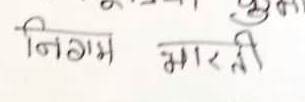 निगम भारती